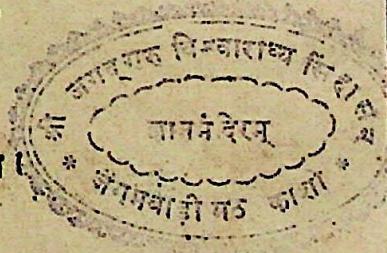 श्री जगद्गुरु विश्वाराध्य
ज्ञानमंदिरम्
* जंगमवाड़ी मठ काशी *